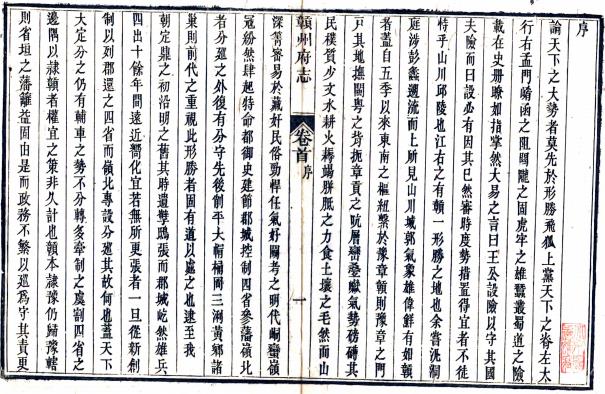 序
論天下之大勢者莫先於形勝飛狐上黨天下之脊左太
行右孟門崤函之阻關隴之固虎牢之雄蠶叢蜀道之險
載在史冊瞭如指掌然大易之言曰王公設險以守其國
夫險而曰設必有因其已然審時度勢措置得宜者不徒
恃乎山川邱陵也江右之有贛一形勝之地也余嘗泝洞
庭涉彭蠡遡流而上所見山川城郭氣象雄偉鮮有如贛
者蓋自五季以來東南之樞紐繫於豫章贛則豫章之門
戶其地撫閩粵之背扼章貢之吭層巒疊巘氣勢磅礴其
民樸質少文水耕火耨竭胼胝之力食土壤之毛然而山
贛州府志
卷首
序
一
深菁密易於藏奸民俗勁悍任氣好鬬考之明代峒蠻嶺
寇紛然肆起特命都御史建節郡城控制四省參藩嶺北
者分廵之外復有分守先後削平大帽桶岡三浰黃鄉諸
巢則前代之重視此形勝者固有道以處之也逮至我
朝定鼎之初沿明之舊其時遺孽鴟張而郡城屹然雄兵
四出十餘年間遠近嚮化宜若無所更張者一旦從新創
制以列郡還之四省而嶺北專設分廵其故何也蓋天下
大定分之仍有輔車之勢不分轉多牽制之虞割四省之
邊隅以隸贛者權宜之策非久計也贛本隸豫仍歸豫轄
則省垣之藩籬益固由是而政務不繁以廵爲守其責更